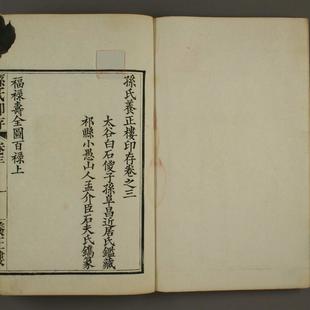 孫氏養正樓印存卷之三
太谷白石傻子孫阜昌近居氏鑑藏
祁縣小愚山人孟介臣石夫氏鐫篆
福祿壽全圖百祿上
孫氏印存 卷三 一 養正樓